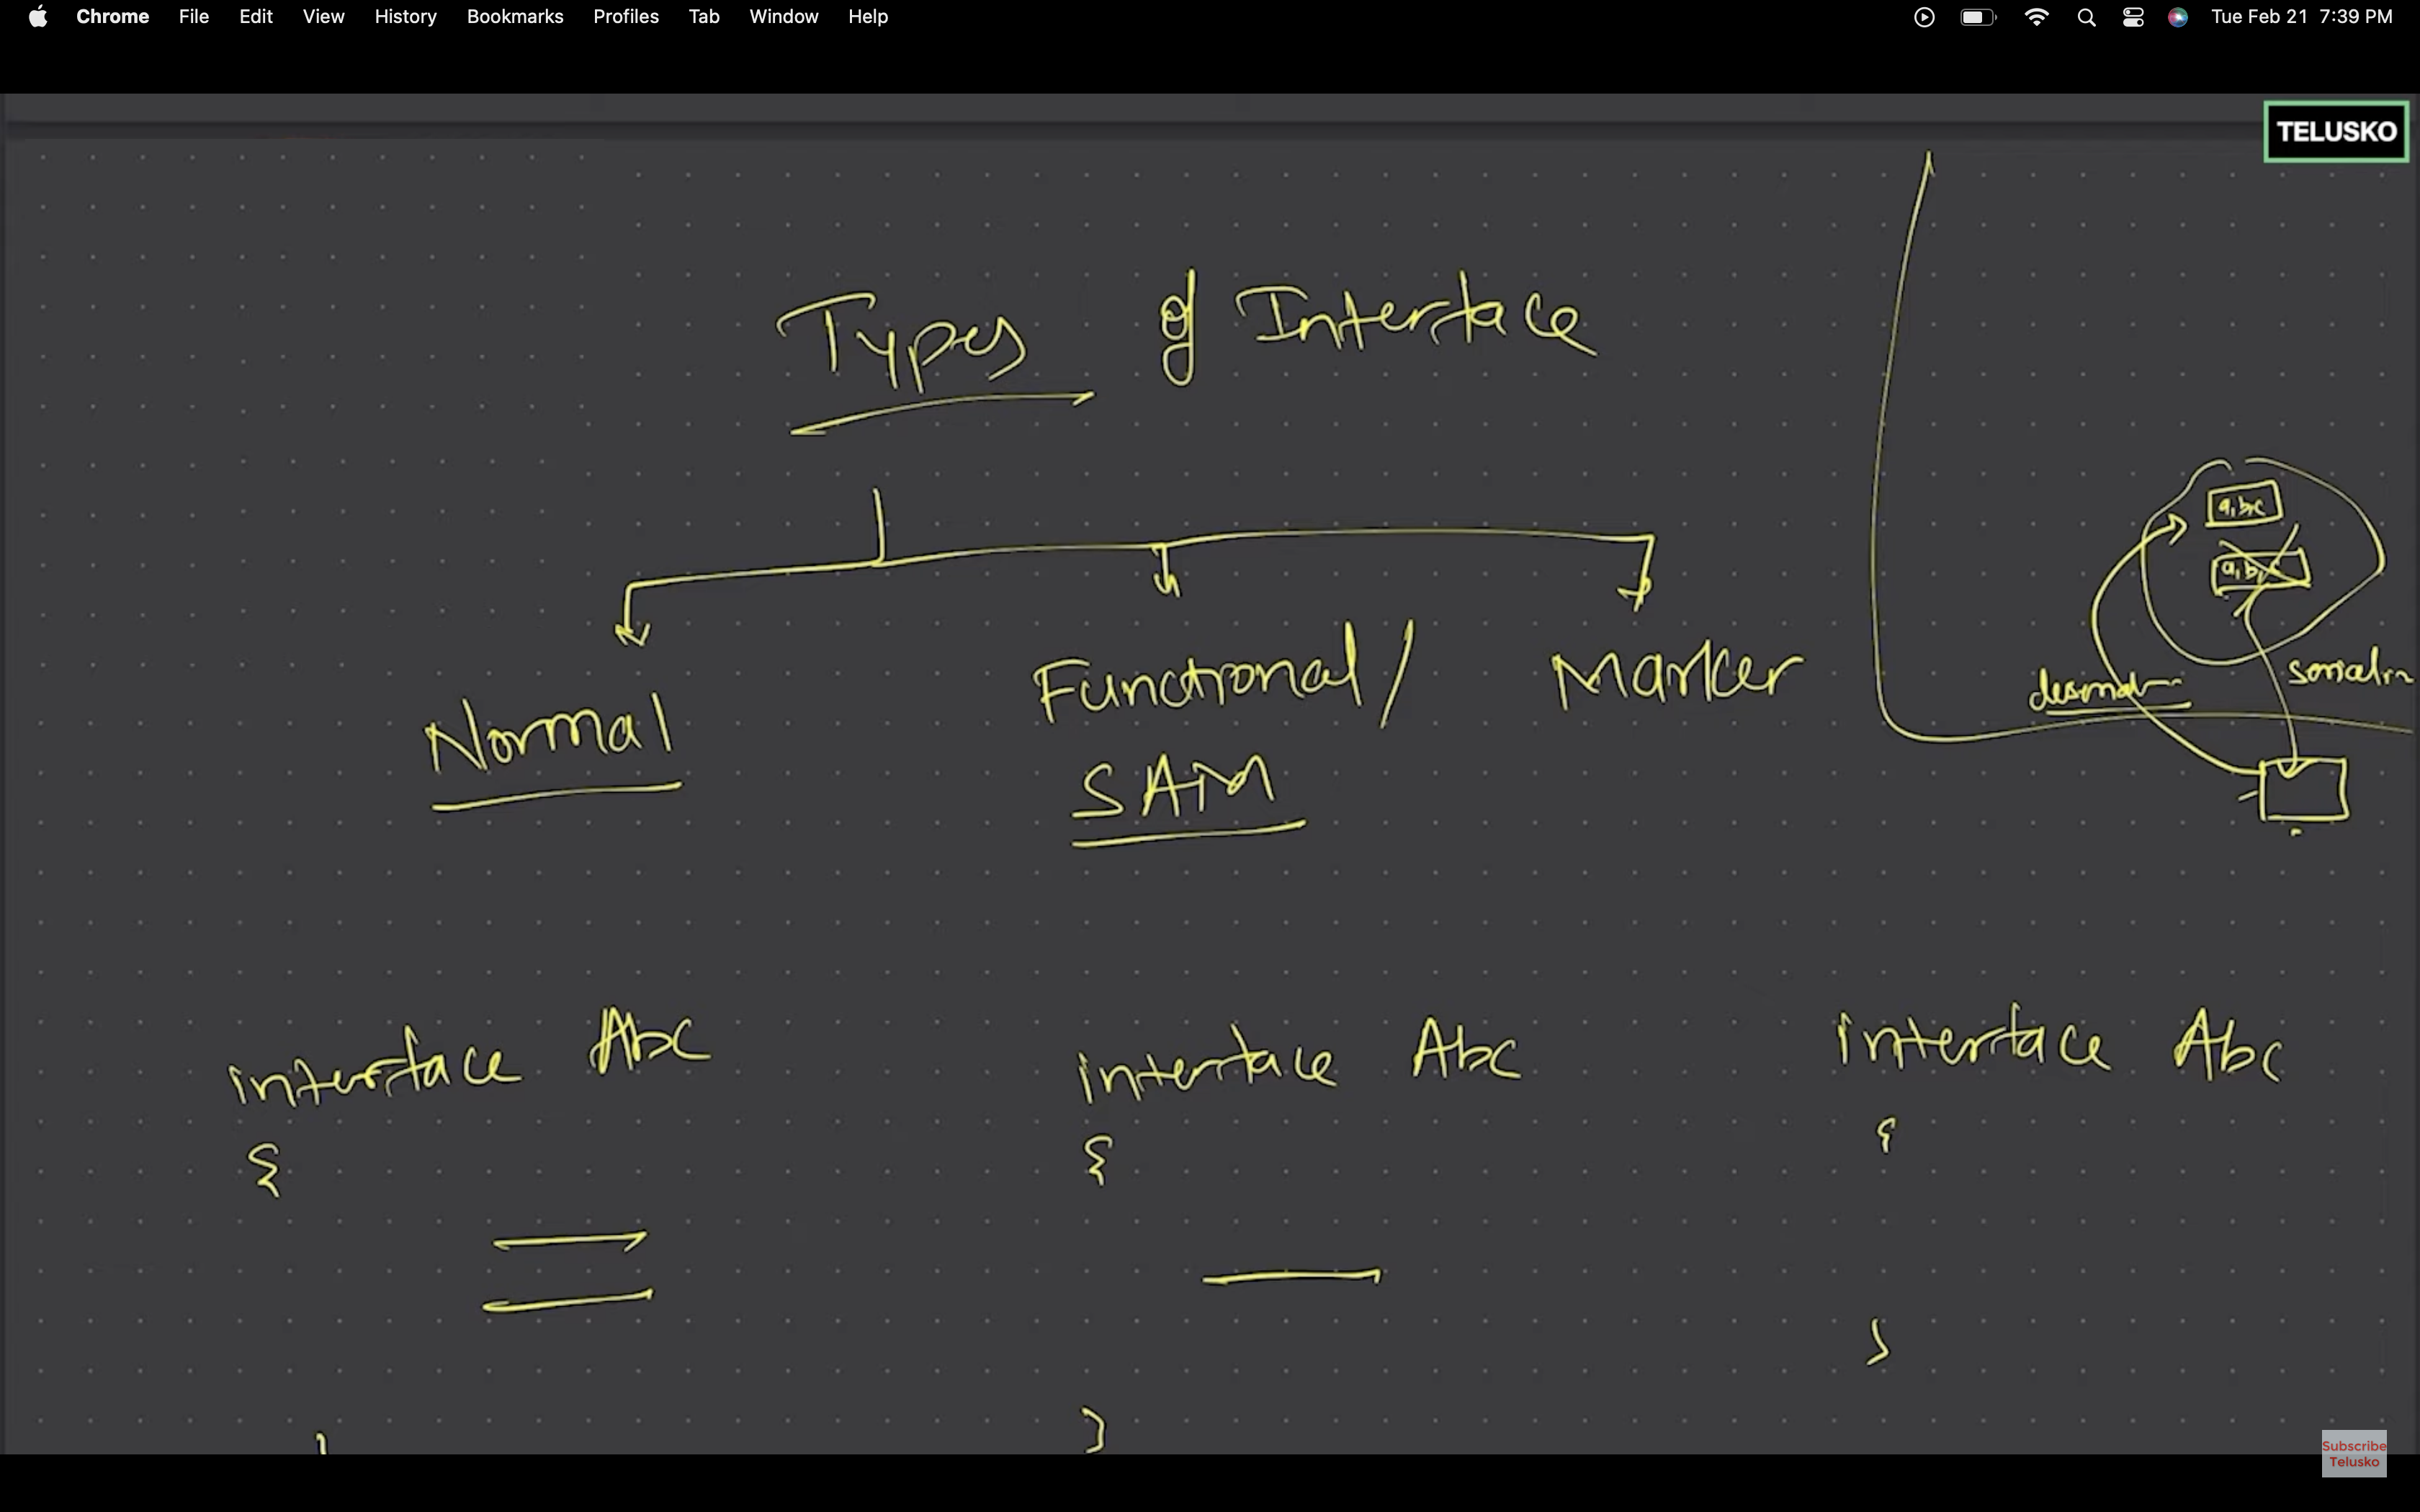 Chrome File Edit View History Bookmarks Profiles Tab Window Help Tue Feb 21 7:39 PM
TELUSKO
Types of Interface
a,b,c
a,b,c
Normal
Functional / Marker
SAM
interface Abc
{
interface Abc
{
}
interface Abc
{
}
Subscribe
Telusko